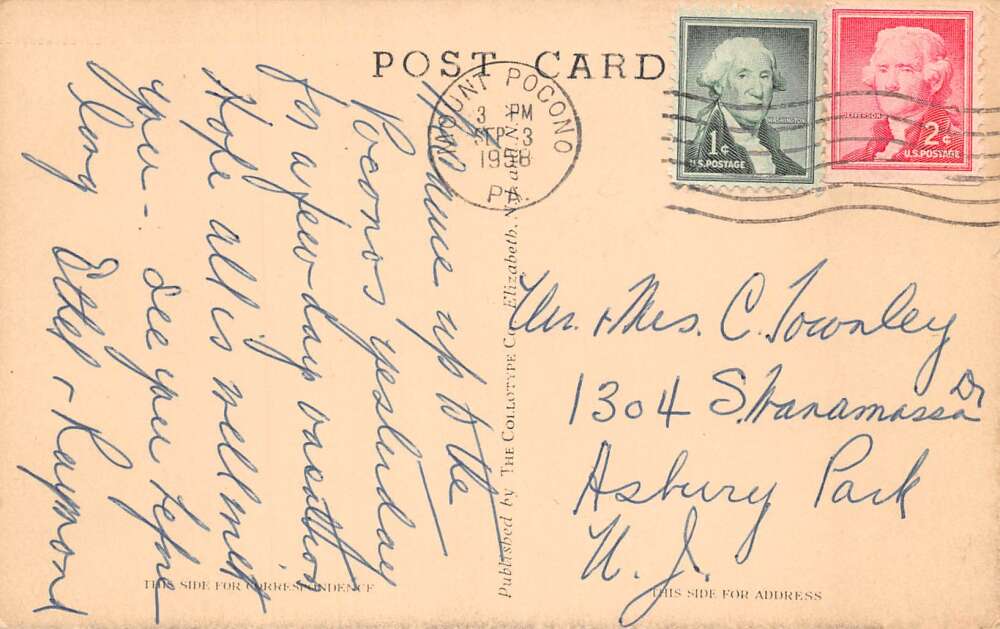 POST CARD
MOUNT POCONO
3 PM
SEP 3
1958
PA.
WASHINGTON
1¢
U.S. POSTAGE
JEFFERSON
2¢
U.S. POSTAGE
came up to the
Poconos yesterday
for a few days vacation
Hope all is well with
you - See you before
long
Ethel & Raymond
Published by THE COLLOTYPE Co., Elizabeth, N.J. and N.Y.
Mr. & Mrs. C. Townley
1304 S. Wanamassa Dr
Asbury Park
N.J.
THIS SIDE FOR CORRESPONDENCE
THIS SIDE FOR ADDRESS